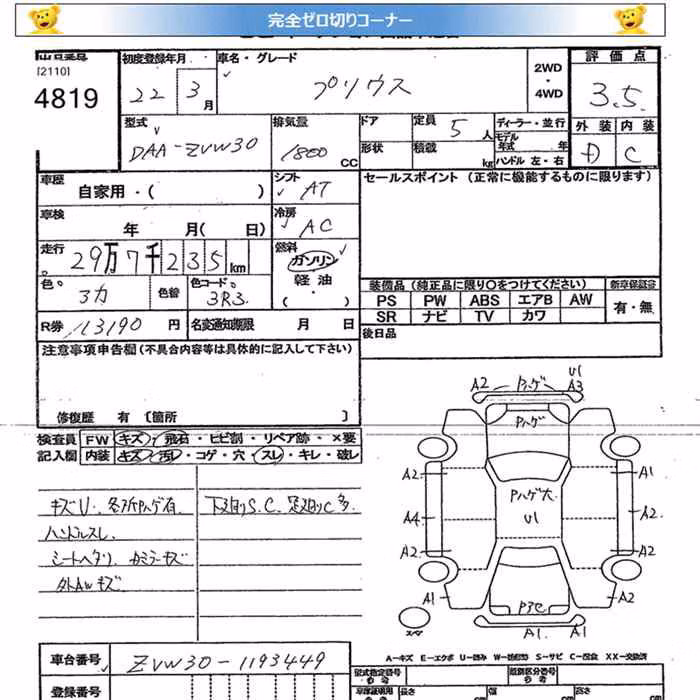 完全ゼロ切りコーナー
[2110]
4819
初度登録年月
22 3月
車名・グレード
プリウス
2WD
・
4WD
評価点
3.5
外装 内装
D C
型式
DAA-ZVW30
排気量
1800 CC
ドア
形状
定員 5人
積載 kg
ディーラー・並行
モデル年式 年
ハンドル 左・右
車歴
自家用・( )
シフト
AT
セールスポイント (正常に機能するものに限ります)
車検
年 月( 日)
冷房
AC
走行
29万7千235km
燃料
ガソリン
軽油
・
( )
色
3カ
色替
色コード
3R3
装備品 (純正品に限り〇をつけてください)
新車保証書
PS PW ABS エアB AW
有・無
SR ナビ TV カワ
R券 113190 円
名変通知期限 月 日
後日品
注意事項申告欄 (不具合内容等は具体的に記入して下さい)
修復歴 有 〔箇所 〕
検査員
記入欄
FW キズ・飛石・ヒビ割・リペア跡・×要
内装 キズ・汚レ・コゲ・穴・スレ・キレ・破レ
キズU. 各所Pハゲ有.
ハンドルスレ
シートヘタリ
外AWキズ
下廻りS.C. 足廻りC多
A2 Pハゲ U1 A3
Pハゲ
A2 A1
Pハゲ大
U1
A4 A2
A2 A2
A1 A2
スペア
A1. A1
A-キズ E-エクボ U-凹み W-波 S-サビ C-腐食 XX-交換済
車台番号 ZVW30-1193449
型式指定番号
類別区分番号
登録番号
長さ
幅
高さ